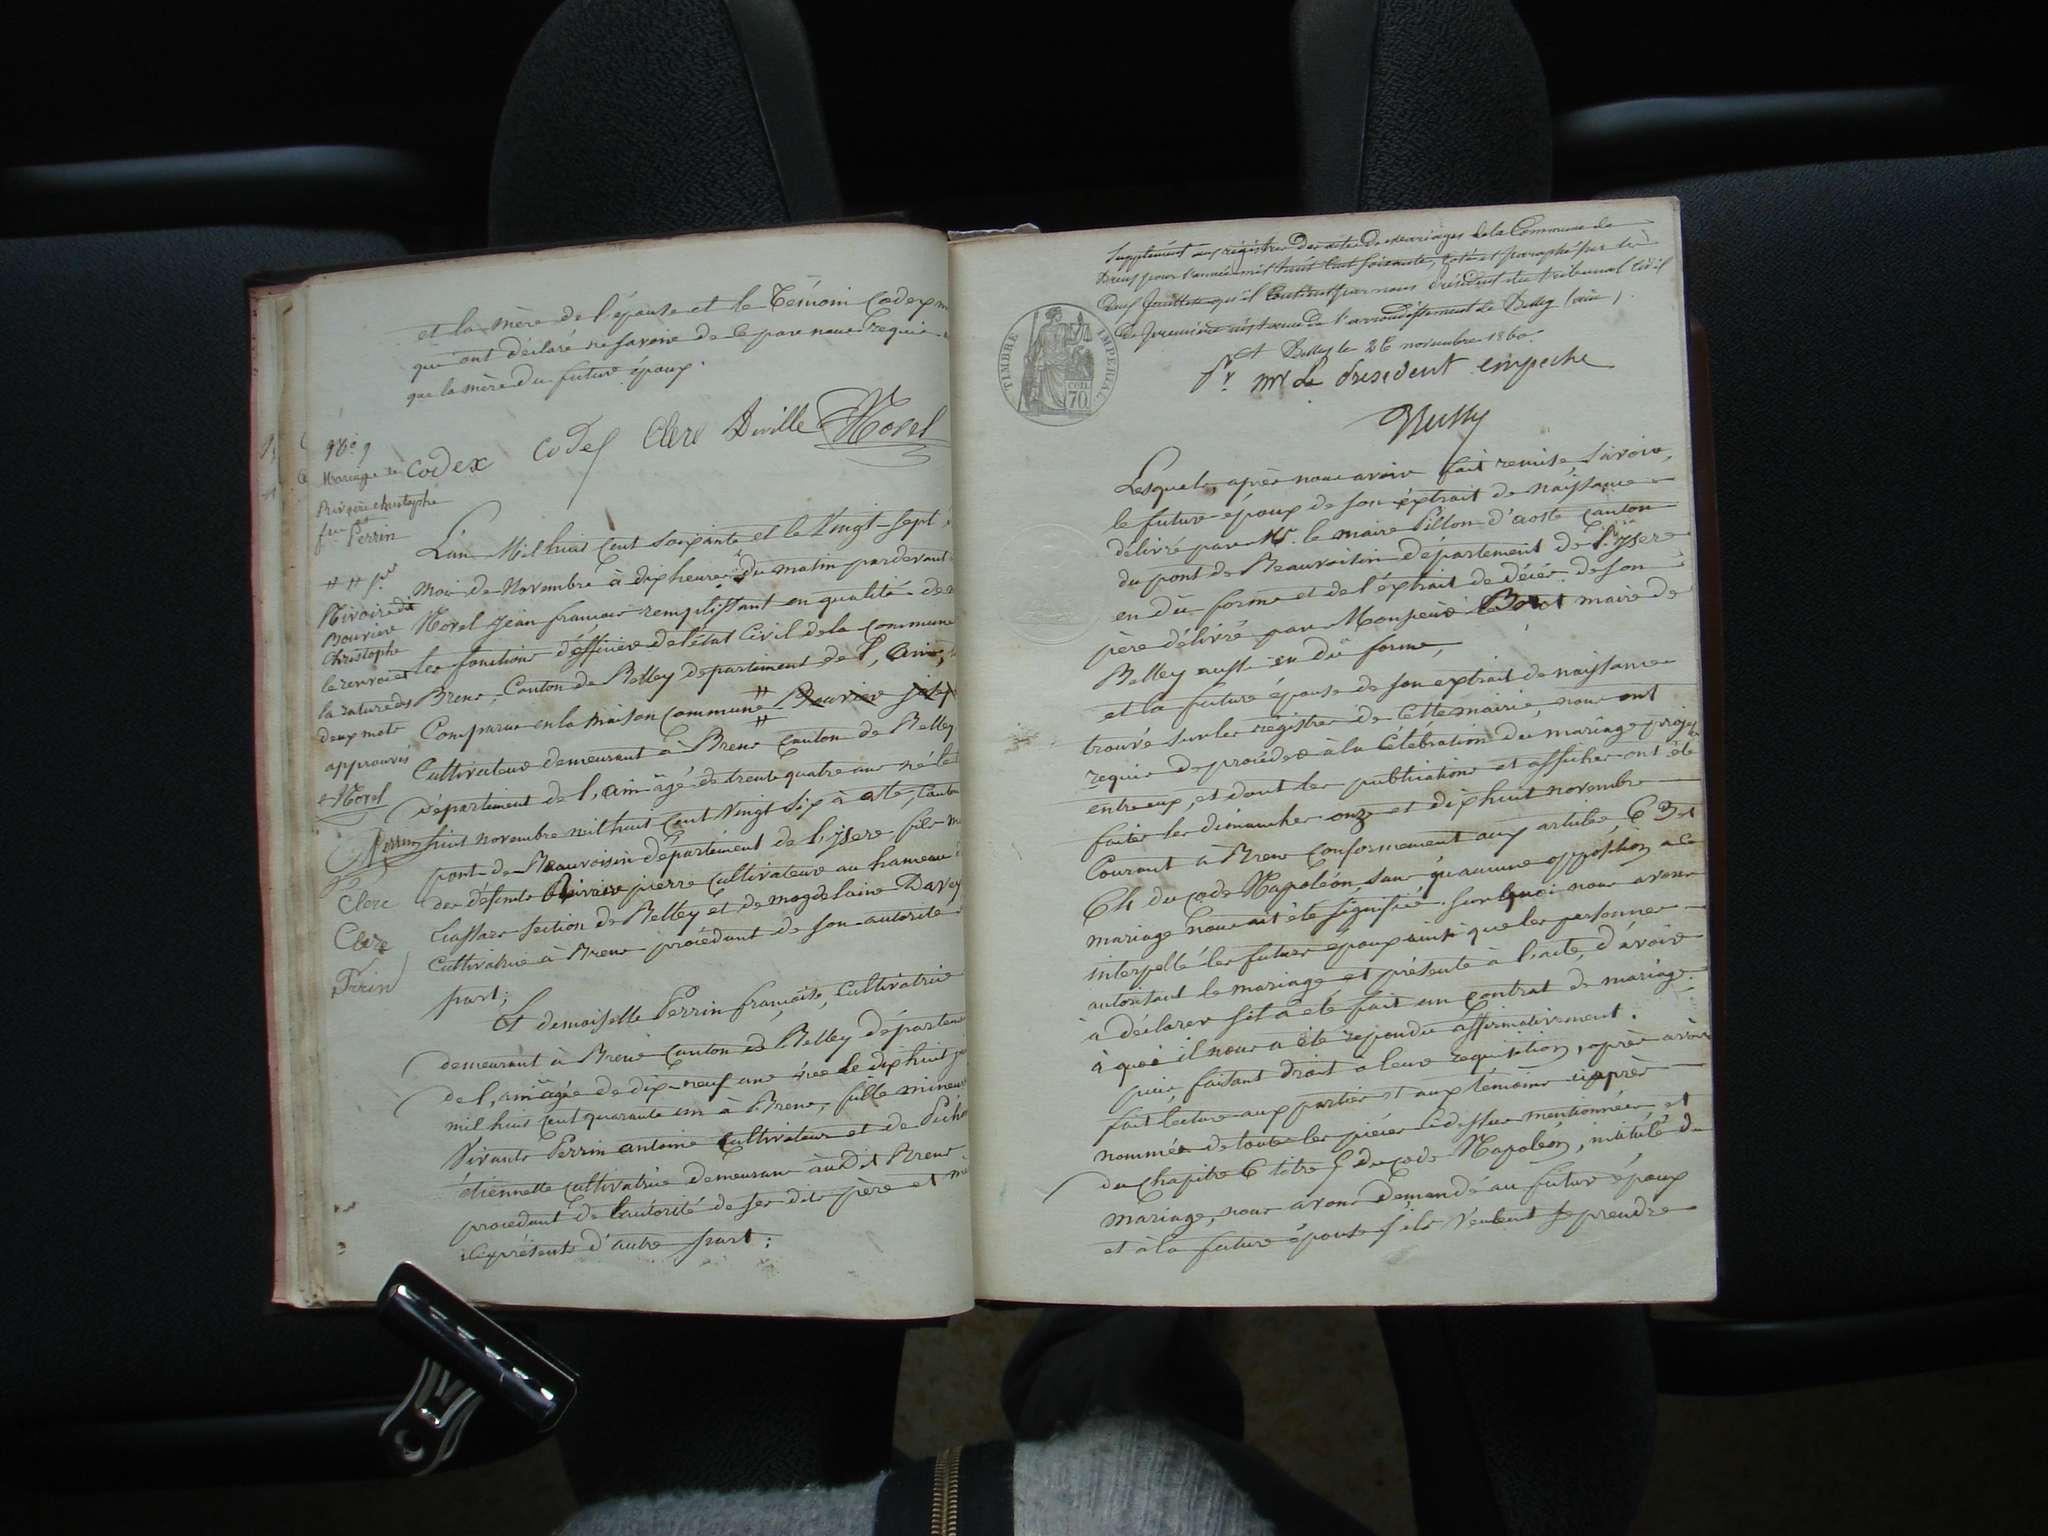 et la mère de l'épouse et le Témoin Codex
qui ont déclaré ne savoir de ce par nous requis
que la mère du futur époux.
Codex Codex Clerc Diville Morel
No 9
Mariage de
Rivoire christophe
et
Perrin
L'an Mil huit Cent Soixante et le Vingt-Sept
mois de Novembre à dix heures du matin pardevant
Morel Jean francois remplissant en qualité de
les fonctions d'officier de l'état Civil de la commune
Brens, Canton de Belley département de l'ain,
Comparus en la maison Commune " Bouvier josep
Cultivateur demeurant à Brens Canton de Belley
département de l'ain âgé de trente quatre ans né le
huit novembre mil huit Cent Vingt Six à aoste, Canton
pont-de-Beauvoisin département de l'ysere fils
des défunts Rivoire pierre Cultivateur au hameau
section de Belley et de magdelaine
Cultivatrice à Brens procédant de son autorité
part;
Et demoiselle Perrin françoise, Cultivatrice
demeurant à Brens Canton de Belley départem
de l'ain âgée de dix-neuf ans née le dix huit
mil huit Cent quarante un à Brens, fille mineure
Vivants Perrin antoine Cultivateur et de
étiennette Cultivatrice demeurant audit Brens
procédant de l'autorité de ses dits père et
ici présents d'autre part;
" " pr
Rivoire dit
Bouvier
Christophe
le renvoi et
la rature des
deux mots
approuvés
Morel
Perrin
Clerc
Clerc
Perrin
Supplément aux régistres des actes de mariages de la Commune de
Brens pour l'année mil huit Cent soixante, Coté et paraphé par
feuillets qu'il Contient par nous président du tribunal Civil
de première instance de l'arrondissement de Belley (ain).
Belley le 26 novembre 1860.
pr mr Le president empeché
TIMBRE IMPERIAL
CEN.
70
Lesquels, après nous avoir fait remise, Savoir,
le futur époux de son extrait de naissance
délivré par Mr. le maire Pillon d'aoste Canton
du pont de Beauvoisin département de l'ysere
en dû forme et de l'extrait de décés de son
père délivré par Monsieur maire de
Belley aussi en dû forme,
et la future épouse de son extrait de naissance
trouvé sur les régistres de Cette mairie, nous ont
requis de procéder à la Célébration du mariage projeté
entre eux, et dont les publications et affiches ont été
faites les dimanches onze et dix huit novembre
Courant à Brens Conformement aux articles 63 et
64 du code Napoléon, sans qu'aucune opposition au
mariage nous ait été signifiée. Sur quoi nous avons
interpellé les futurs époux ainsi que les personnes
autorisant le mariage et présents à l'acte, d'avoir
à déclarer s'il a été fait un Contrat de mariage
à quoi il nous a été répondu affirmativement.
puis faisant droit à leur requisition, après avoir
fait lecture aux parties et aux témoins ciaprès
nommés de toutes les pièces ci dessus mentionnées et
du chapitre 6 titre 5 du code Napoléon, intitulé du
mariage, nous avons demandé au futur époux
et à la future épouse s'ils veulent se prendre